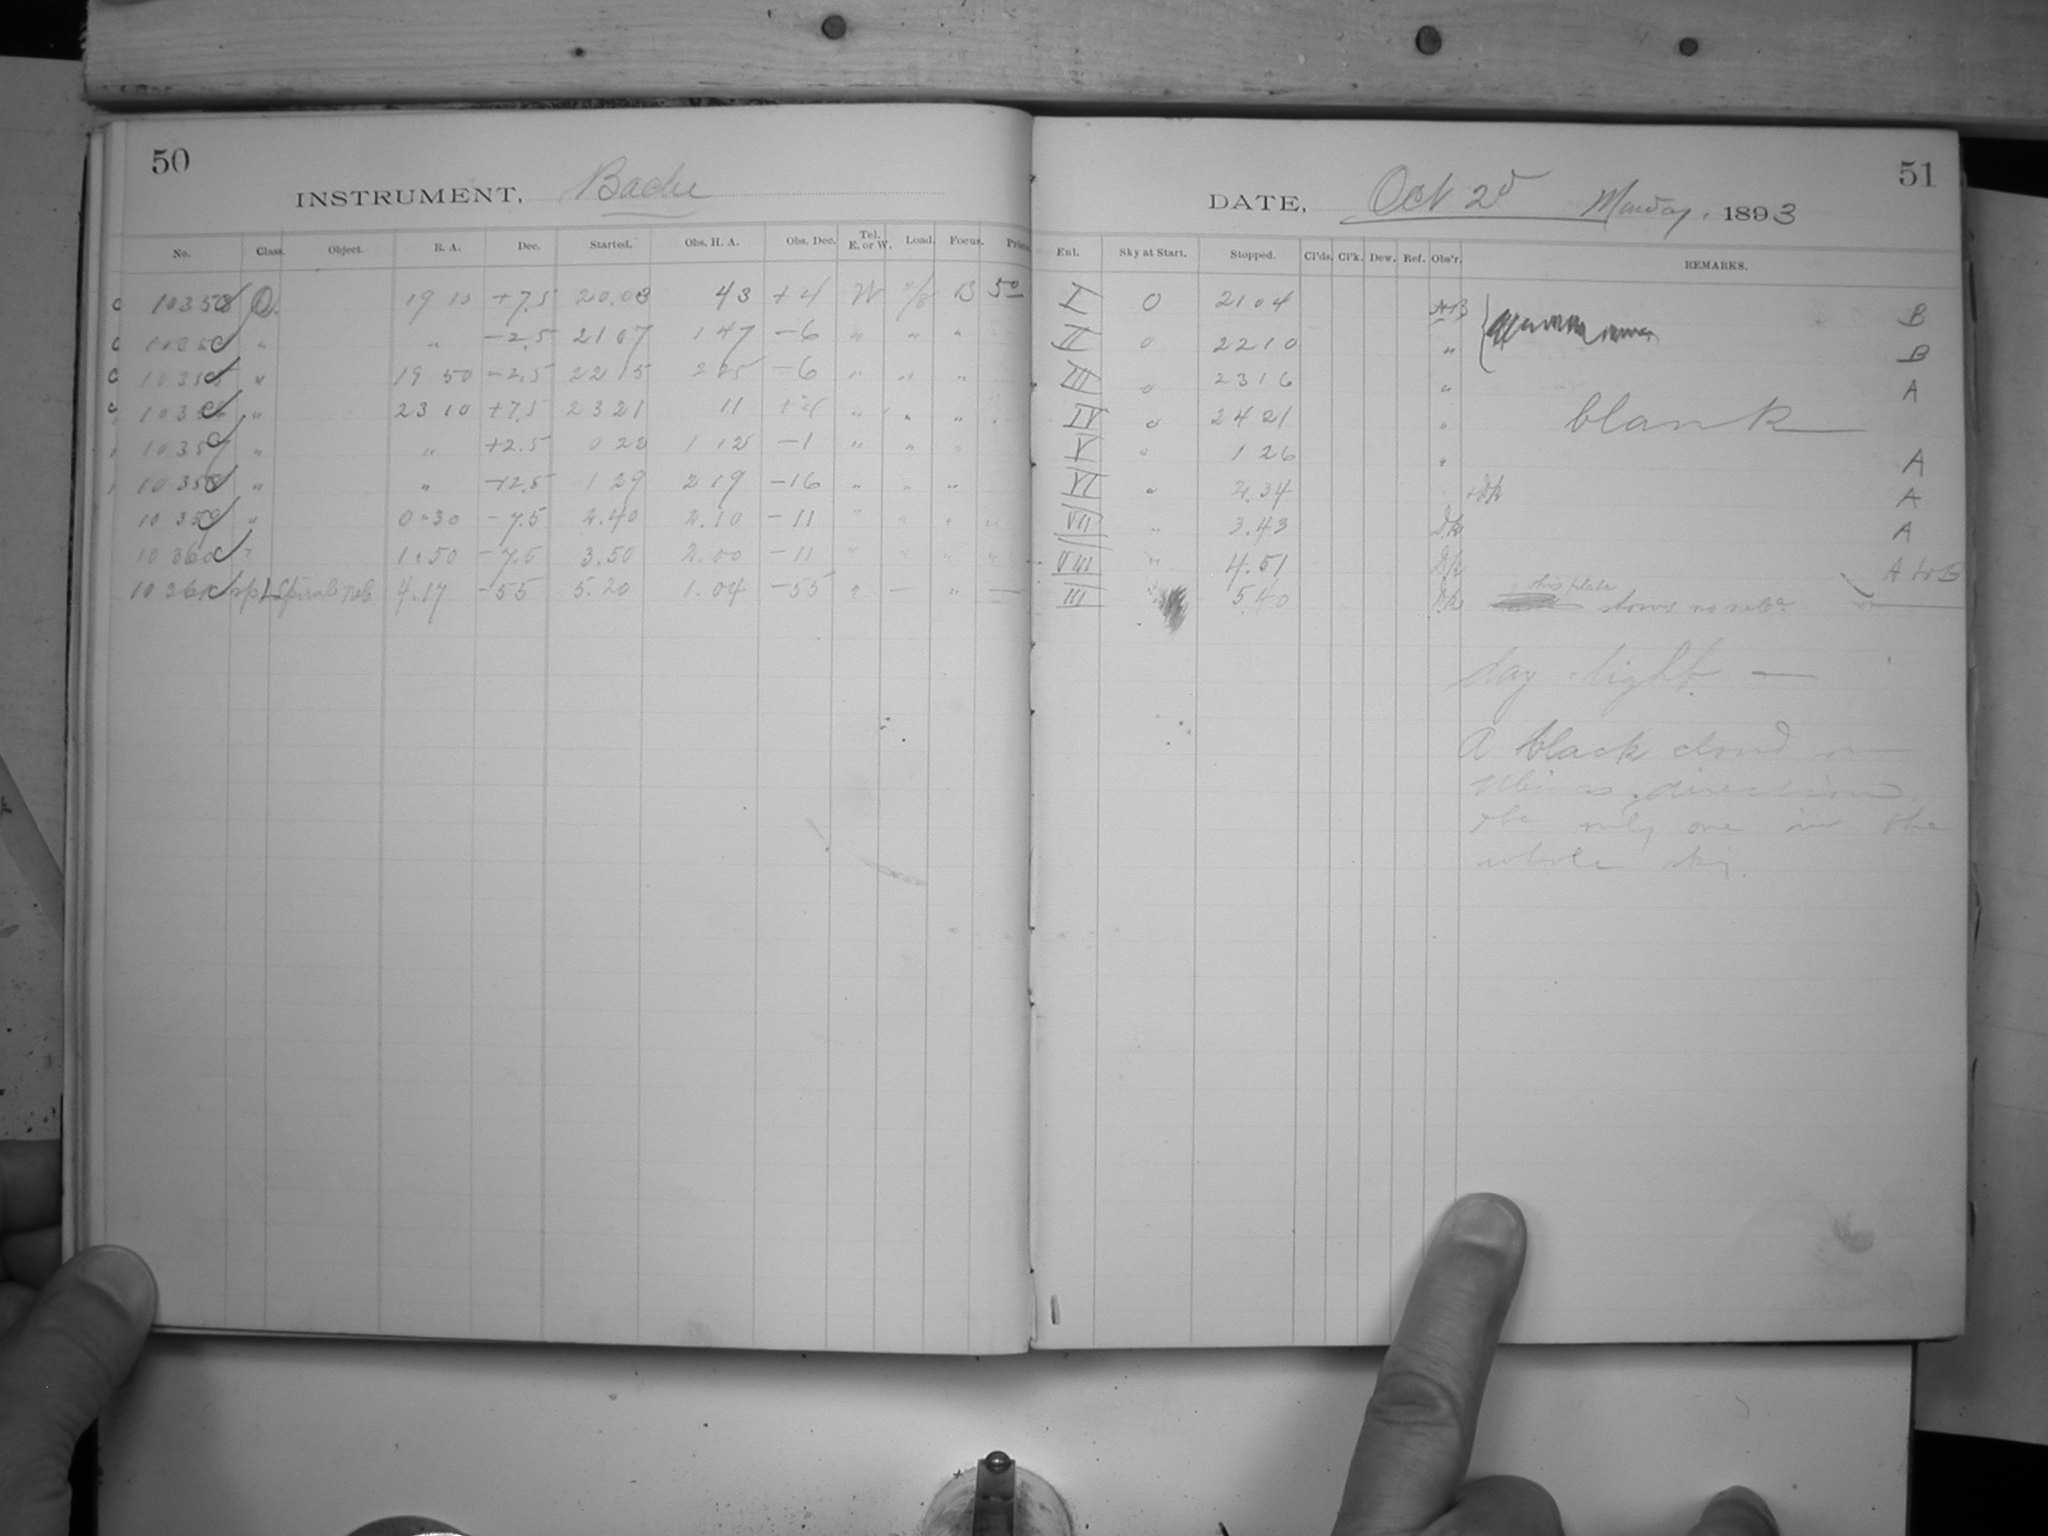 50
INSTRUMENT, Bache
No. Class. Object. R. A. Dec. Started. Obs. H. A. Obs. Dec. Tel. E. or W. Load. Focus.
C 10353 C. 19 10 +7.5 20.03 43 +4 W B 50
C " " -2.5 2107 1 47 -6 " " "
C 10355 " 19 50 -2.5 22 15 2 25 -6 " " "
C 10356 " 23 10 +7.5 23 21 11 +4 " " "
10357 " " +2.5 0 22 1 12 -1 " " "
10358 " " -12.5 1 29 2 19 -16 " " "
10359 " 0.30 -7.5 2.40 2.10 -11 " " " "
10360 " 1.50 -7.5 3.50 2.00 -11 " " " "
10361 Spiral neb 4.17 -55 5.20 1.04 -55 " — " —
51
DATE, Oct 2d Monday, 1893
Enl. Sky at Start. Stopped. Cl'ds. Cl'k. Dew. Ref. Obs'r. REMARKS.
I 0 2104 B
II 0 2210 " B
III 0 2316 " A
IV 0 2421 " blank
V " 1 26 " A
VI " 2.34 A
VII " 3.43 A
VIII " 4.51 A to B
III 5.40 this plate shows no neba
day light —
A black cloud
direction
the only one in the
whole sky.